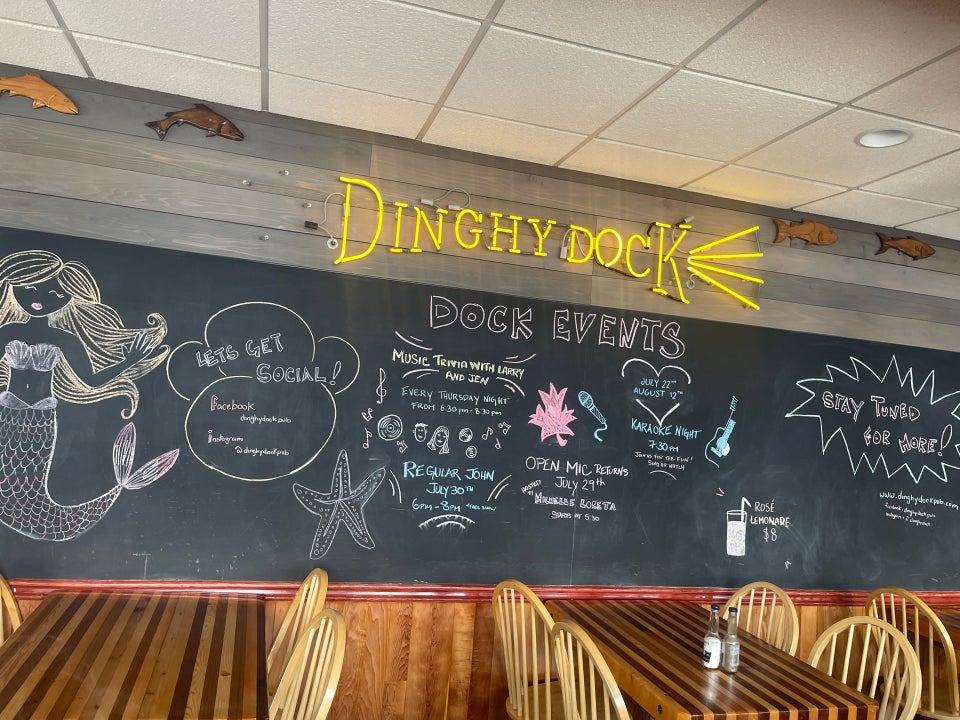 DINGHY DOCK
DOCK EVENTS
LETS GET
SOCIAL!
Facebook
dinghydockpub
Instagram
@dinghydockpub
MUSIC TRIVIA WITH LARRY
AND JEN
EVERY THURSDAY NIGHT
FROM 6:30PM - 8:30PM
REGULAR JOHN
JULY 30TH
6PM - 8PM
OPEN MIC RETURNS
JULY 29TH
HOSTED BY MICHELLE LORETA
STARTS AT 5:30
JULY 22ND
AUGUST 12TH
KARAOKE NIGHT
7:30PM
JOIN US FOR THE FUN!
SING OR WATCH
ROSÉ
LEMONADE
$8
STAY TUNED
FOR MORE!
www.dinghydockpub.com
facebook: dinghydockpub
instagram: @dinghydock